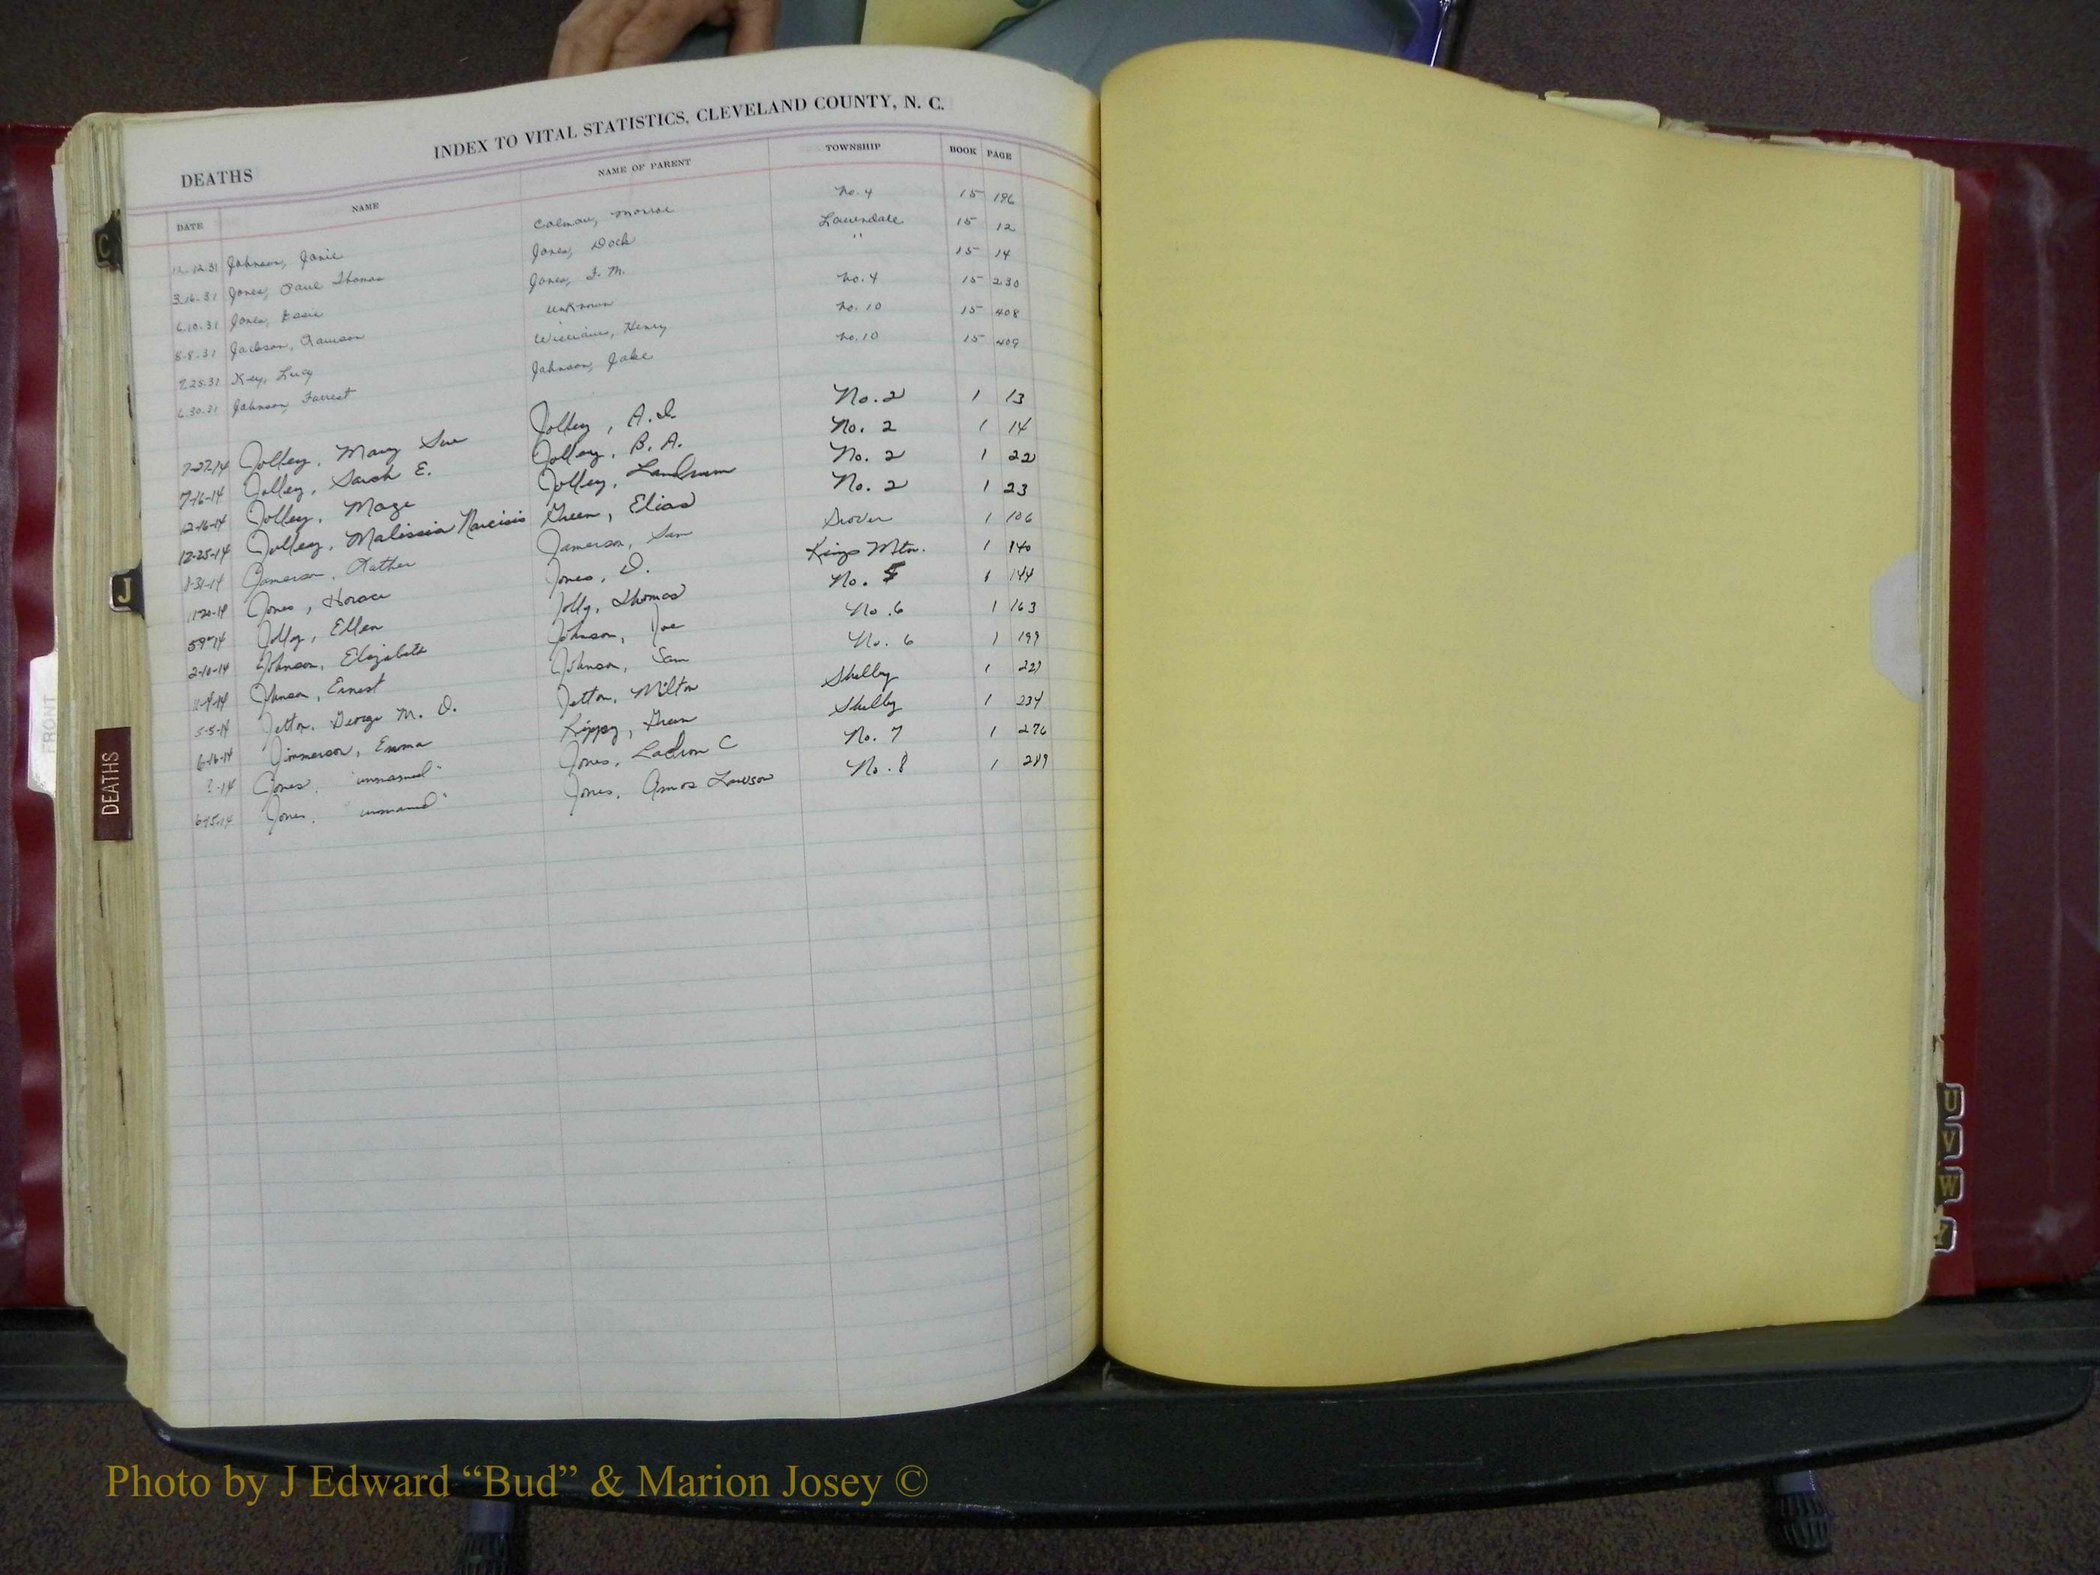 INDEX TO VITAL STATISTICS, CLEVELAND COUNTY, N. C.
DEATHS
DATE NAME NAME OF PARENT TOWNSHIP BOOK PAGE
12-12-31 Johnson, Janie Colman, Monroe No. 4 15 196
3-16-31 Jones, Paul Thomas Jones, Dock Lawndale 15 12
6-10-31 Jones, Essie Jones, F. M. " 15 14
8-8-31 Jackson, unknown No. 4 15 230
7-25-31 Key, Lucy Williams, Henry No. 10 15 408
6-30-31 Johnson, Forrest Johnson, Jake No. 10 15 409
7-27-14 Jolley, Mary Sue Jolley, A. No. 2 1 13
7-16-14 Jolley, Sarah E. Jolley, B. A. No. 2 1 14
12-16-14 Jolley, Maze Jolley, Landrum No. 2 1 22
12-25-14 Jolley, Malissia Narcisis Green, Elias No. 2 1 23
8-31-14 Jamerson, Rather Jamerson, Sam Grover 1 106
11-20-14 Jones, Horace Jones, D. Kings Mtn. 1 140
5-9-14 Jolly, Ellen Jolly, Thomas No. 5 1 144
2-10-14 Johnson, Elizabeth Johnson, Joe No. 6 1 163
11-4-14 Johnson, Ernest Johnson, Sam No. 6 1 199
5-5-14 Jetton, George M. D. Jetton, Milton Shelby 1
6-16-14 Jimmerson, Emma Kippy, Green Shelby 1 234
?-14 Jones, "unnamed" Jones, C No. 7 1 276
6-15-14 Jones, "unnamed" Jones, Amos Lawson No. 8 1 289
C
J
FRONT
DEATHS
U
V
W
Y
Photo by J Edward “Bud” & Marion Josey ©